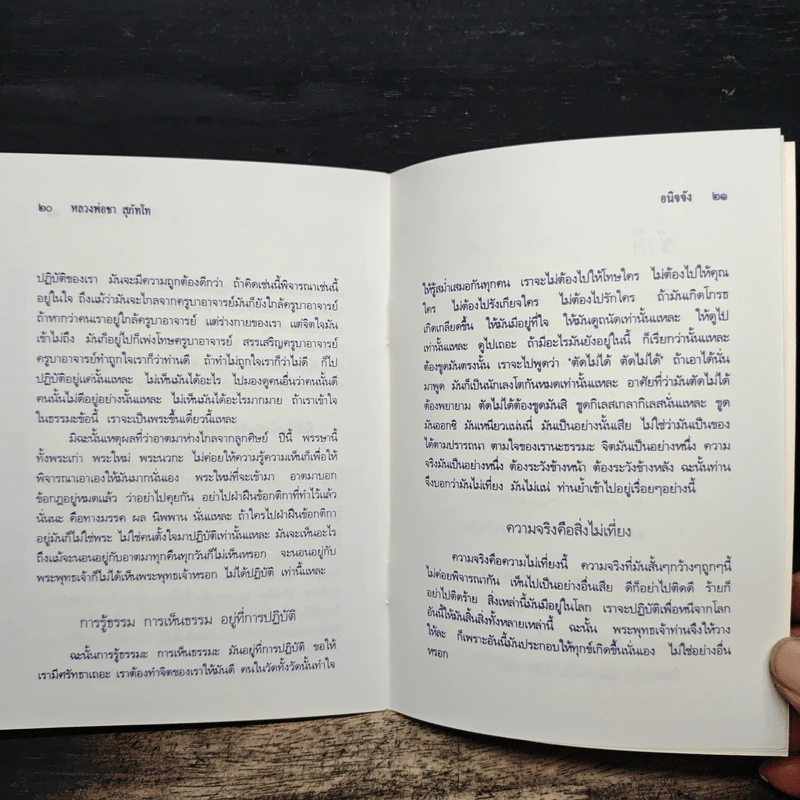 ๒๐ หลวงพ่อชา สุภัทโท
ปฏิบัติของเรา มันจะมีความถูกต้องดีกว่า ถ้าคิดเช่นนี้พิจารณาเช่นนี้
อยู่ในใจ ถึงแม้ว่ามันจะไกลจากครูบาอาจารย์มันก็ยังใกล้ครูบาอาจารย์
ถ้าหากว่าคนเราอยู่ใกล้ครูบาอาจารย์ แต่ร่างกายของเรา แต่จิตใจมัน
เข้าไม่ถึง มันก็อยู่ไปเพ่งโทษครูบาอาจารย์ สรรเสริญครูบาอาจารย์
ครูบาอาจารย์ทำถูกใจเราก็ว่าท่านดี ถ้าทำไม่ถูกใจเราก็ว่าไม่ดี ก็ไป
ปฏิบัติอยู่แค่นั้นแหละ ไม่เห็นมันได้อะไร ไปมองดูคนอื่นว่าคนนั้นดี
คนนั้นไม่ดีอยู่อย่างนั้นแหละ ไม่เห็นมันได้อะไรมากมาย ถ้าเราเข้าใจ
ในธรรมะข้อนี้ เราจะเป็นพระขึ้นเดี๋ยวนี้แหละ
มิฉะนั้นเหตุผลที่ว่าอาตมาห่างไกลจากลูกศิษย์ ปีนี้ พรรษานี้
ทั้งพระเก่า พระใหม่ พระนวกะ ไม่ค่อยให้ความรู้ความเห็นก็เพื่อให้
พิจารณาเอาเองให้มันมากนั่นเอง พระใหม่ที่จะเข้ามา อาตมาบอก
ข้อกฎอยู่หมดแล้ว ว่าอย่าไปคุยกัน อย่าไปฝ่าฝืนข้อกติกาที่ทำไว้แล้ว
นั่นนะ คือทางมรรค ผล นิพพาน นั่นแหละ ถ้าใครไปฝ่าฝืนข้อกติกา
อยู่มันก็ไม่ใช่พระ ไม่ใช่คนตั้งใจมาปฏิบัติเท่านั้นแหละ มันจะเห็นอะไร
ถึงแม้จะนอนอยู่กับอาตมาทุกคืนทุกวันก็ไม่เห็นหรอก จะนอนอยู่กับ
พระพุทธเจ้าก็ไม่ได้เห็นพระพุทธเจ้าหรอก ไม่ได้ปฏิบัติ เท่านี้แหละ
การรู้ธรรม การเห็นธรรม อยู่ที่การปฏิบัติ
ฉะนั้นการรู้ธรรมะ การเห็นธรรมะ มันอยู่ที่การปฏิบัติ ขอให้
เรามีศรัทธาเถอะ เราต้องทำจิตของเราให้มันดี คนในวัดทั้งวัดนั้นทำใจ
อนิจจัง ๒๑
ให้รู้สม่ำเสมอกันทุกคน เราจะไม่ต้องไปให้โทษใคร ไม่ต้องไปให้คุณ
ใคร ไม่ต้องไปรังเกียจใคร ไม่ต้องไปรักใคร ถ้ามันเกิดโกรธ
เกิดเกลียดขึ้น ให้มันมีอยู่ที่ใจ ให้มันดูถนัดเท่านั้นแหละ ให้ดูไป
เท่านั้นแหละ ดูไปเถอะ ถ้ามีอะไรมันยังอยู่ในนี้ ก็เรียกว่านั้นแหละ
ต้องขูดมันตรงนั้น เราจะไปพูดว่า "ตัดไม่ได้ ตัดไม่ได้" ถ้าเอาได้นั่น
มาพูด มันก็เป็นนักเลงโตกันหมดเท่านั้นแหละ อาศัยที่ว่ามันตัดไม่ได้
ต้องพยายาม ตัดไม่ได้ต้องขูดมันสิ ขูดกิเลสเกลากิเลสนั่นแหละ ขูด
มันออกซิ มันเหนียวแน่นนี่ มันเป็นอย่างนั้นเสีย ไม่ใช่ว่ามันเป็นของ
ได้ตามปรารถนา ตามใจของเรานะธรรมะ จิตมันเป็นอย่างหนึ่ง ความ
จริงมันเป็นอย่างหนึ่ง ต้องระวังข้างหน้า ต้องระวังข้างหลัง ฉะนั้นท่าน
จึงบอกว่ามันไม่เที่ยง มันไม่แน่ ท่านย้ำเข้าไปอยู่เรื่อยๆอย่างนี้
ความจริงคือสิ่งไม่เที่ยง
ความจริงคือความไม่เที่ยงนี้ ความจริงที่มันสั้นๆกว้างๆถูกๆนี้
ไม่ค่อยพิจารณากัน เห็นไปเป็นอย่างอื่นเสีย ดีก็อย่าไปติดดี ร้ายก็
อย่าไปติดร้าย สิ่งเหล่านี้มันมีอยู่ในโลก เราจะปฏิบัติเพื่อหนีจากโลก
อันนี้ให้มันสิ้นสิ่งทั้งหลายเหล่านี้ ฉะนั้น พระพุทธเจ้าท่านจึงให้วาง
ให้ละ ก็เพราะอันนี้มันประกอบให้ทุกข์เกิดขึ้นนั่นเอง ไม่ใช่อย่างอื่น
หรอก